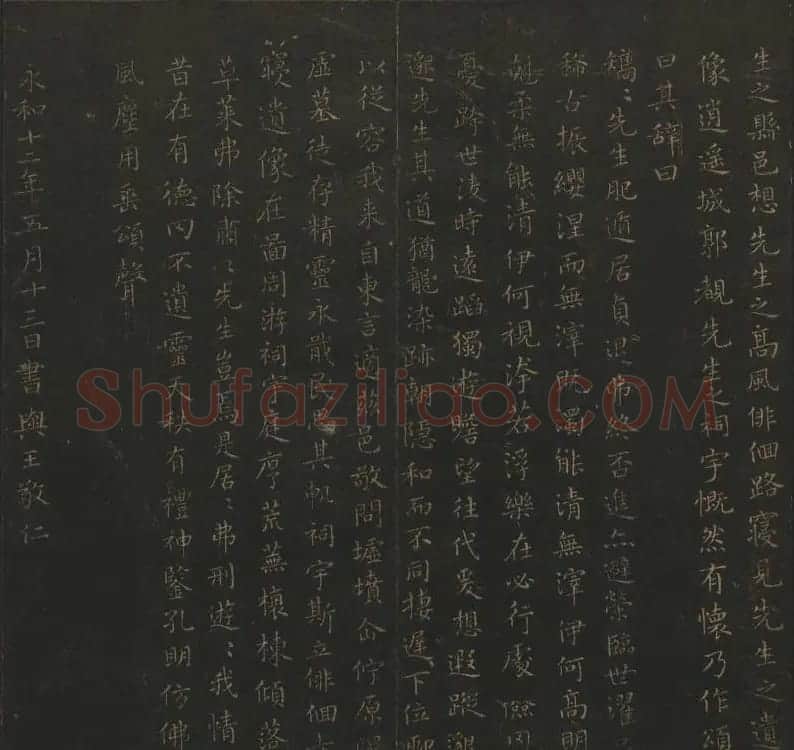 生之縣邑想先生之高風俳佪路寢見先生之遺
像逍遥城郭覩先生之祠宇慨然有懷乃作頌
曰其辭曰
矯〻先生肥遁居貞退弗終否進亦避榮臨世濯
稀古振纓涅而無滓既濁能清無滓伊何高明
剋柔無能清伊何視洿若浮樂在必行處儉罔
憂跨世淩時遠蹈獨遊瞻望往代爰想遐蹤邈
邈先生其道猶龍染跡朝隱和而不同棲遲下位聊
以從容我来自東言適兹邑敬問墟墳企佇原
虛墓徒存精靈永戢民思其軌祠宇斯立俳佪
寢遺像在啚周游祠宇庭序荒蕪榱棟傾落
草莱弗除肅〻先生豈焉是居〻弗刑遊〻我情
昔在有德罔不遺靈天秩有禮神鑒孔明仿佛
風塵用垂頌聲
永和十二年五月十三日書與王敬仁
Shufaziliao.COM